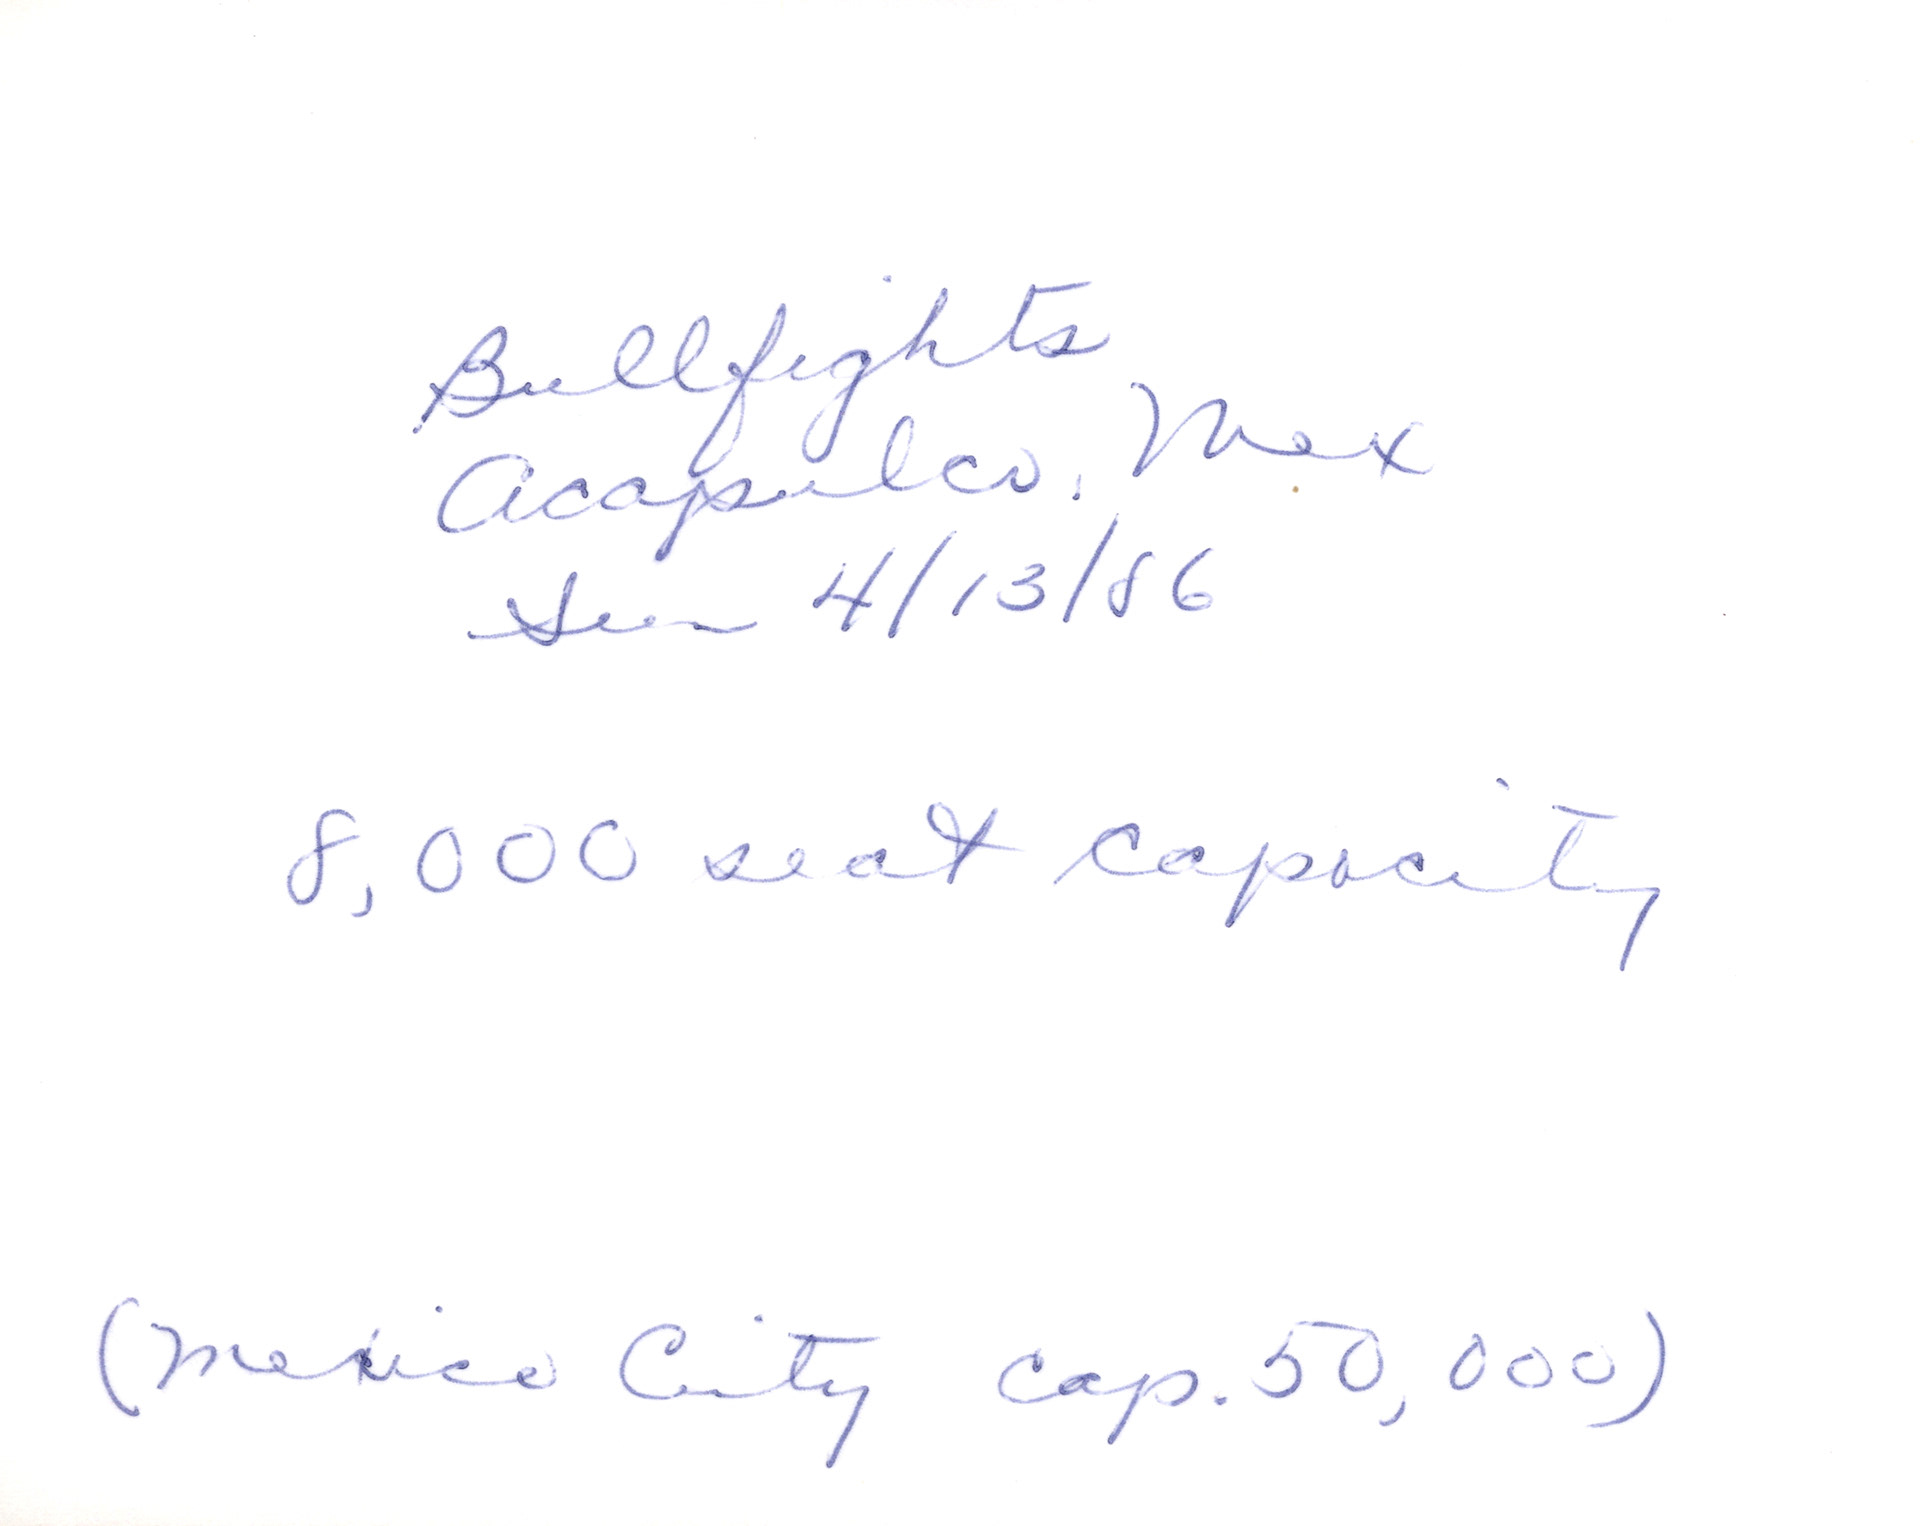 Bullfights
Acapulco, Mex
Sun 4/13/86
8,000 seat capacity
(Mexico City cap. 50,000)